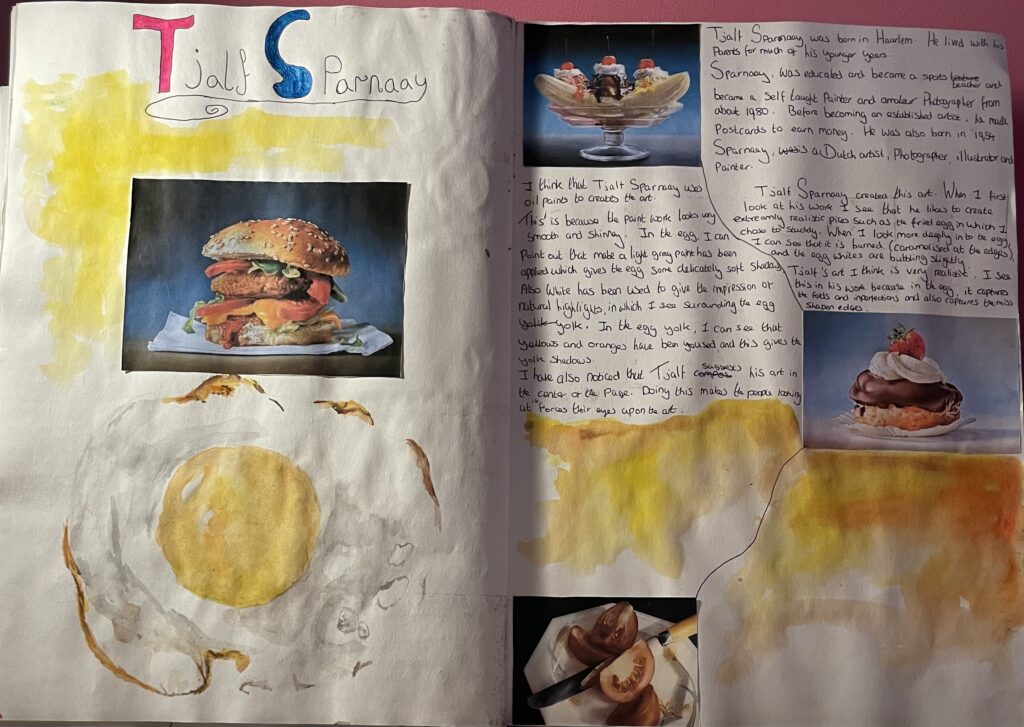 Tjalf Sparnaay
Tjalf Sparnaay was born in Haarlem. He lived with his
Parents for much of his younger years.
Sparnaay, was educated and became a sports teacher and
became a self taught Painter and amateur Photographer from
about 1980. Before becoming an established artist, he made
Postcards to earn money. He was also born in 1954
Sparnaay, was a Dutch artist, Photographer, illustrator and
Painter.
I think that Tjalf Sparnaay uses
oil paints to creates the art.
This is because the paint work looks very
smooth and shinney. In the egg, I can
Point out that mabe a light gray paint has been
applied which gives the egg some delicately soft shading
Also white has been used to give the impression of
natural highlights, in which I see surrounding the egg
yolk. In the egg yolk, I can see that
yellows and oranges have been yoused, and this gives the
yolk shadows.
I have also noticed that Tjalf his art in
the center of the Page. Doing this makes the people looking
at it forces their eyes upon the art.
Tjalf Sparnaay created this art. When I first
look at his work I see that he likes to create
extreamly realistic pices such as the fried egg in which I
chose to studdy. When I look more deeply in to the egg,
I can see that it is burned (caramalised at the edges),
and the egg whites are bubbling slightly
Tjalf's art I think is very realistic. I see
this in his work because in the egg, it captures
the folds and inperfections and also captures the miss
shapen edges.